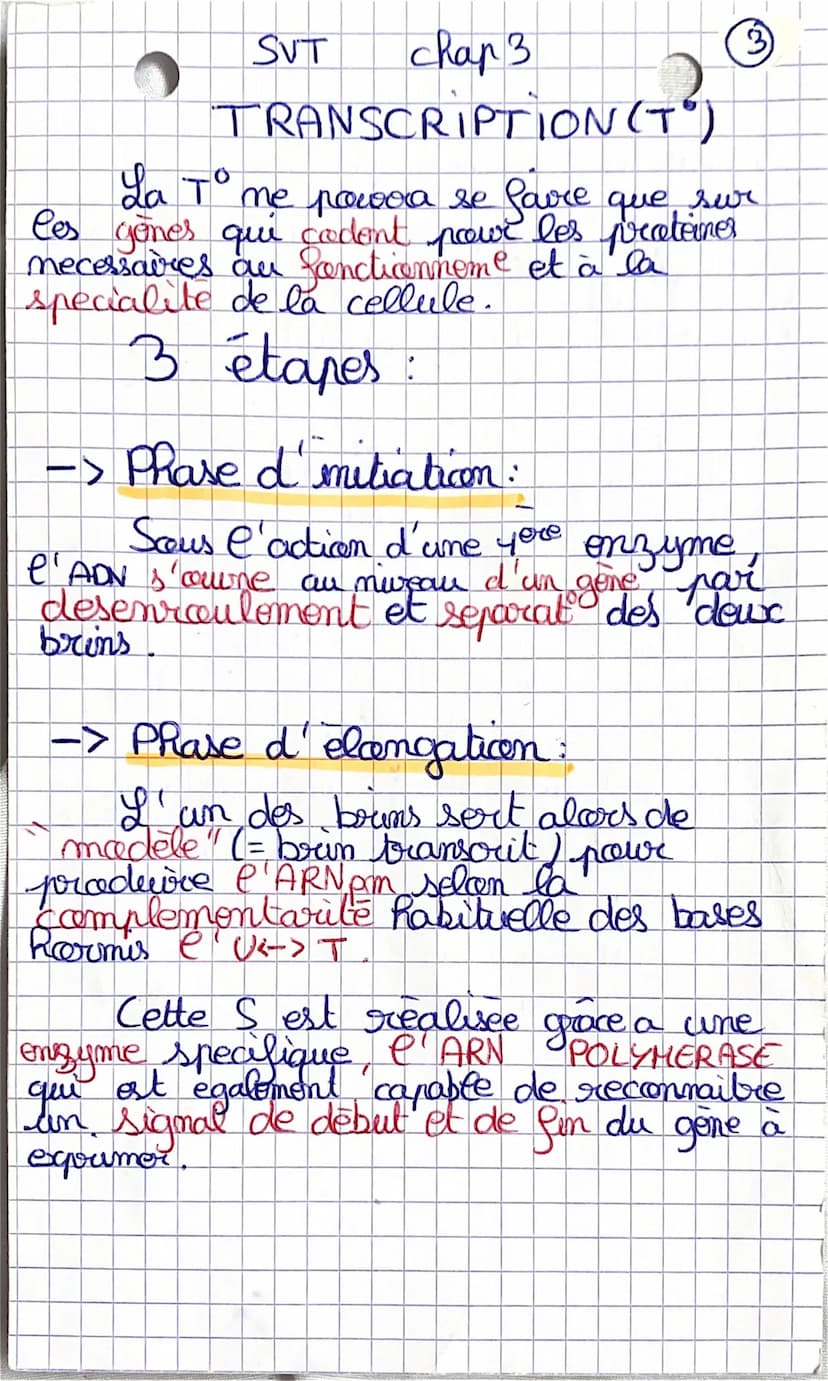 SVT chap 3 ③
TRANSCRIPTION (T°)
La T° ne pourra se faire que sur
les gènes qui codent pour les protéines
necessaires au fonctionneme et à la
specialité de la cellule.
3 étapes :
-> Phase d'initiation :
Sous l'action d'une 1ère enzyme,
l'ADN s'ouvre au niveau d'un gène par
desenroulement et separat° des deux
brins.
-> Phase d'élongation :
L'un des brins sert alors de
"modèle" (= brin transcrit) pour
produire l'ARNpm selon la
complementarité habituelle des bases
hormis l'U<-> T.
Cette S est réalisée grâce a une
enzyme specifique, l'ARN POLYMERASE
qui est egalement capable de reconnaitre
un signal de début et de fin du gène à
exprimer.